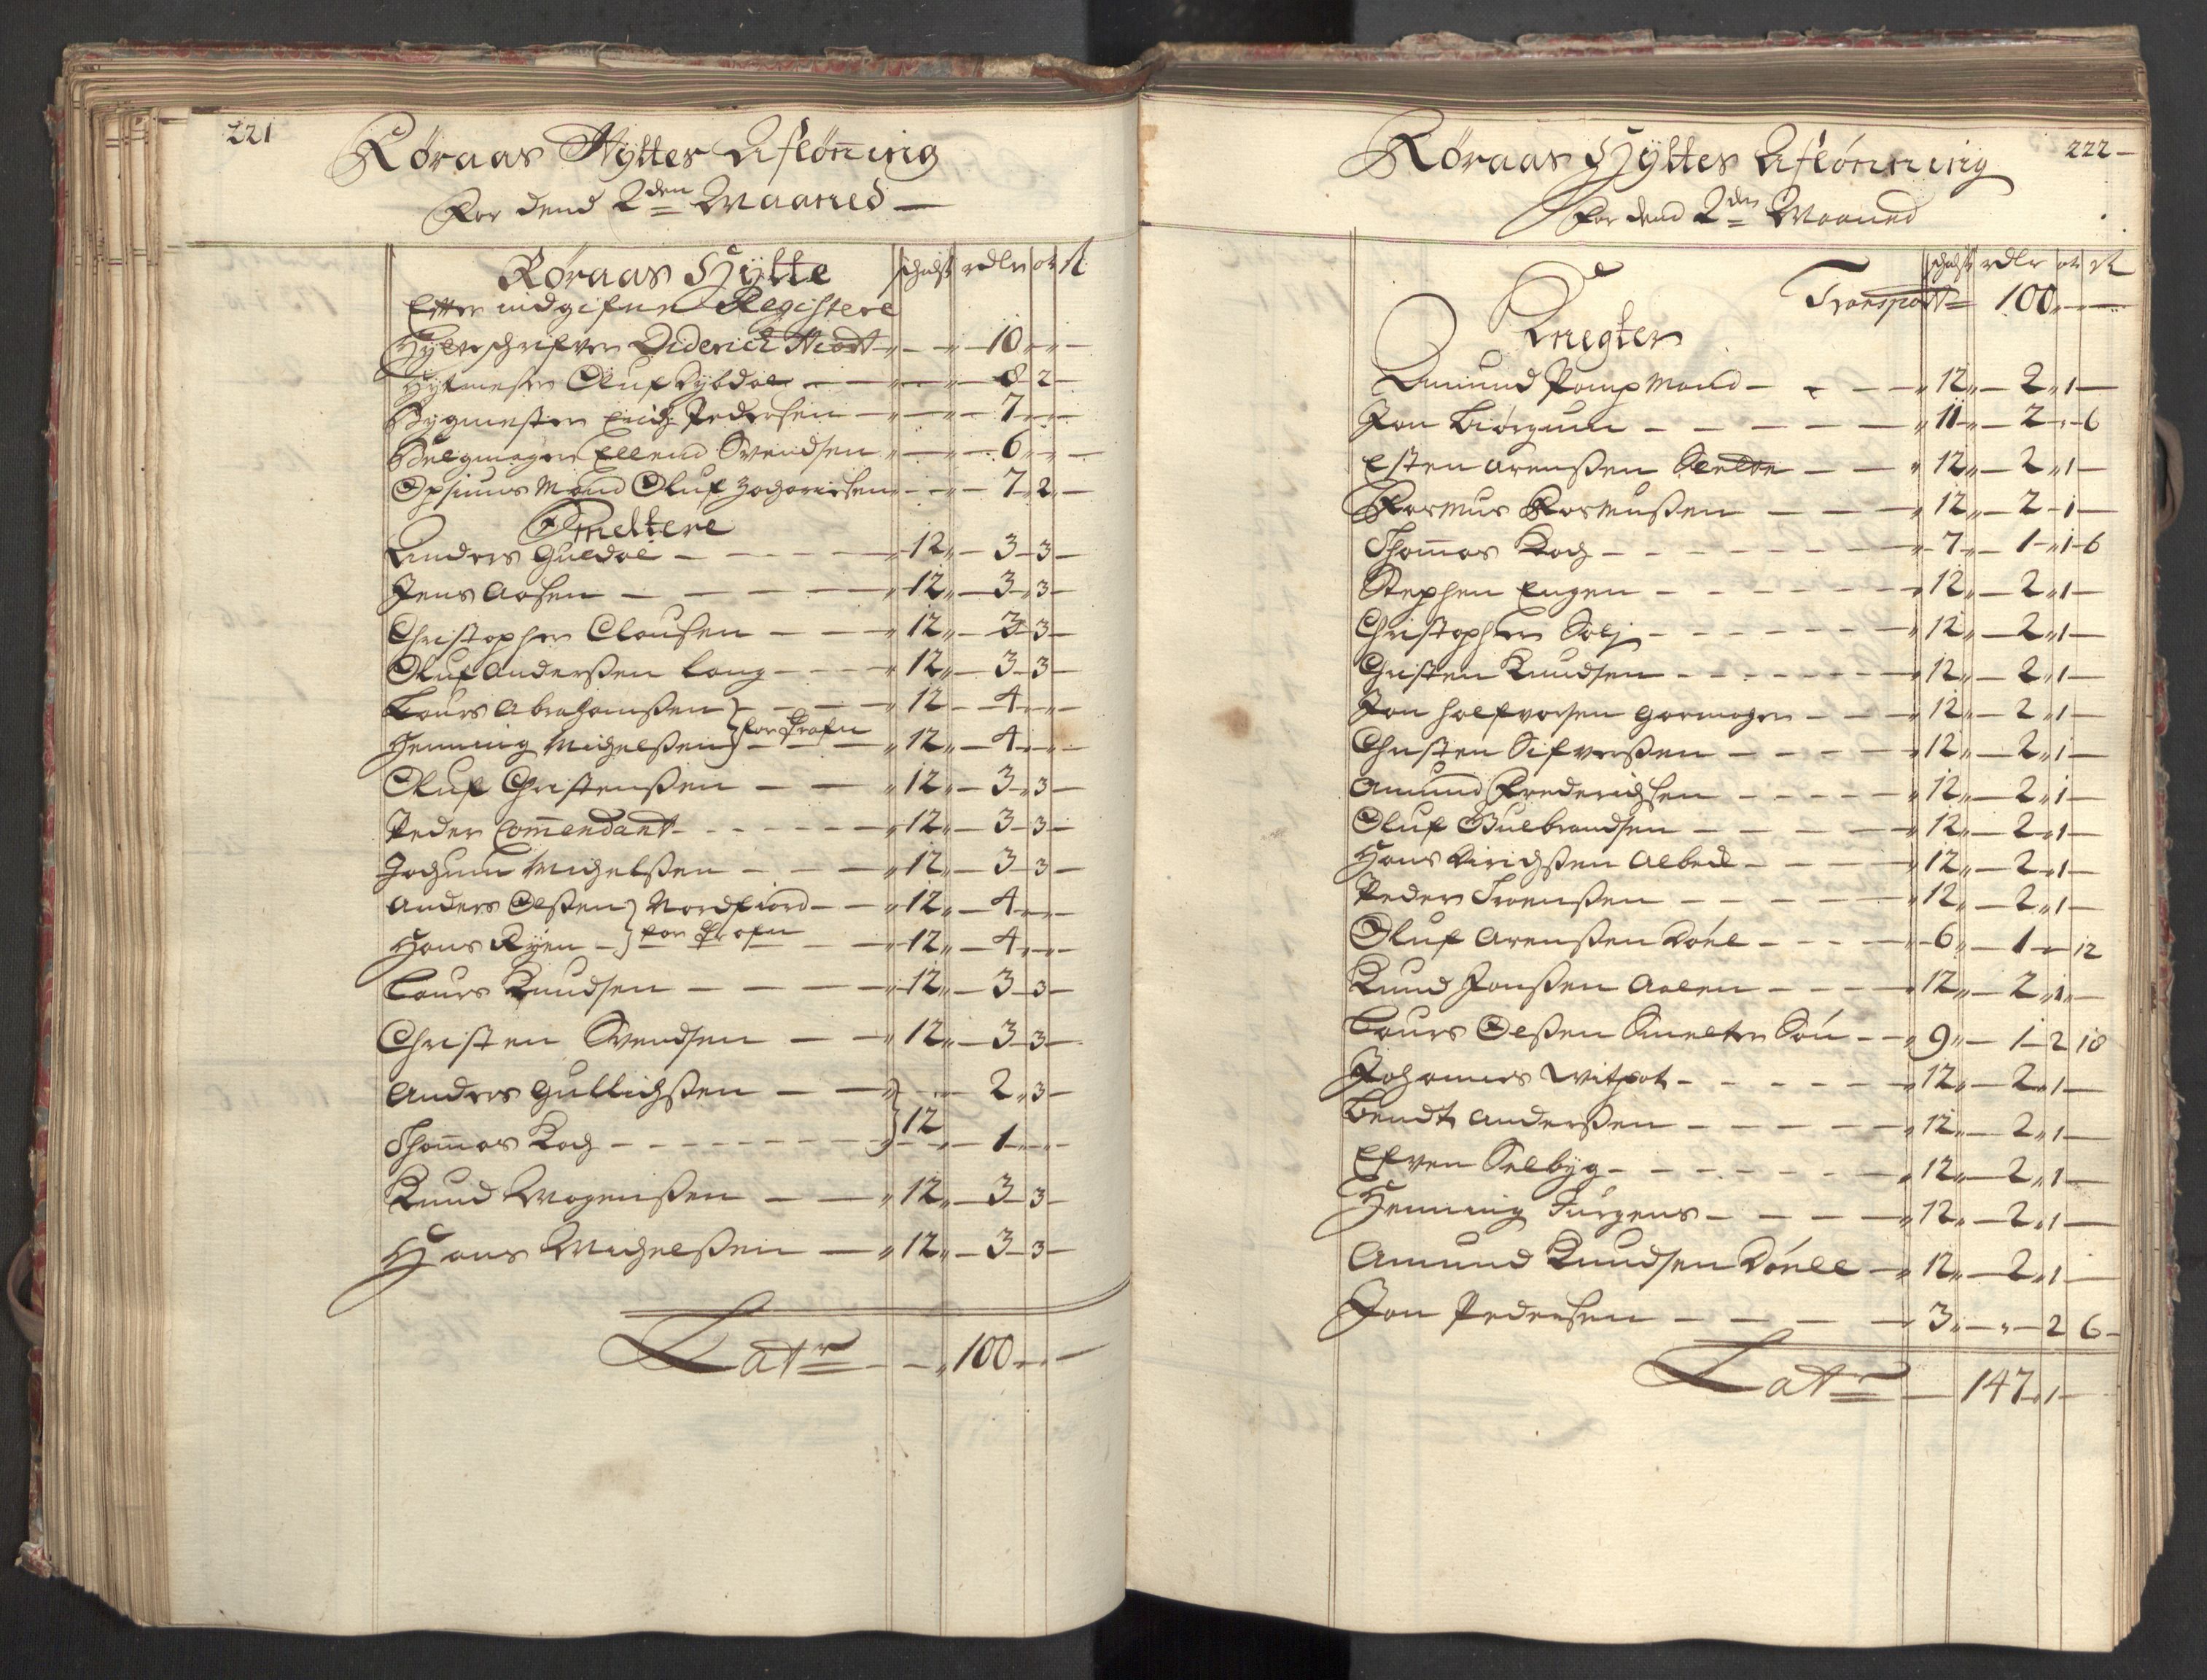 221
Røraas Hyttes Aflønning
For dend 2den Maaned
Røraas Hytte schufst rdlr ort sk
Efter indgifne Registere
Hytteschrifver Diderich Hiort 10
Hytmester Oluf Dybdal 8 2
Bygmester Erich Pedersen 7
Belgmager Ellend Svendsen 6
Opsiuns Mand Oluf Zachariesen 7 2
Smeltere
Anders Guldal 12 3 3
Jens Aasen 12 3 3
Christopher Clausen 12 3 3
Oluf Anderssen Lang 12 3 3
Laurs Abrahamssen 12 4
Henning Michelssen } for Prøfn 12 4
Oluf Christenssen 12 3 3
Peder Commendant 12 3 3
Jochum Michelssen 12 3 3
Anders Olssen Nordfiord 12 4
Hans Ryen } for Prøfn 12 4
Laurs Knudsen 12 3 3
Christen Svendsen 12 3 3
Anders Gullichssen 2 3
Thomas Koch } 12 1
Knud Mogenssen 12 3 3
Hans Michelssen 12 3 3
Latr 100
222
Røraas Hyttes Aflønning
For dend 2den Maaned
schufst rdlr ort sk
Transport 100
Knegter
Amund Pompmand 12 2 1
Jon Biørgum 11 2 6
Esten Arenssen 12 2 1
Rasmus Rasmussen 12 2 1
Thomas Koch 7 1 1 6
Stephen Engen 12 2 1
Christopher Solj 12 2 1
Christen Knudsen 12 2 1
Jon Halfvorsen Garmager 12 2 1
Christen Sifverssen 12 2 1
Amund Frederichsen 12 2 1
Oluf Gulbrandsen 12 2 1
Hans Dirichssen Albed 12 2 1
Peder Svenssen 12 2 1
Oluf Arenssen Døel 6 1 12
Knud Jonssen Aalen 12 2 1
Laurs Olssen Smelter Søn 9 1 2 18
Johannes Witpot 12 2 1
Bendt Anderssen 12 2 1
Efven Selbyg 12 2 1
Henning Jürgens 12 2 1
Amund Knudsen Døell 12 2 1
Jon Pedersen 3 2 6
Latr 147 1